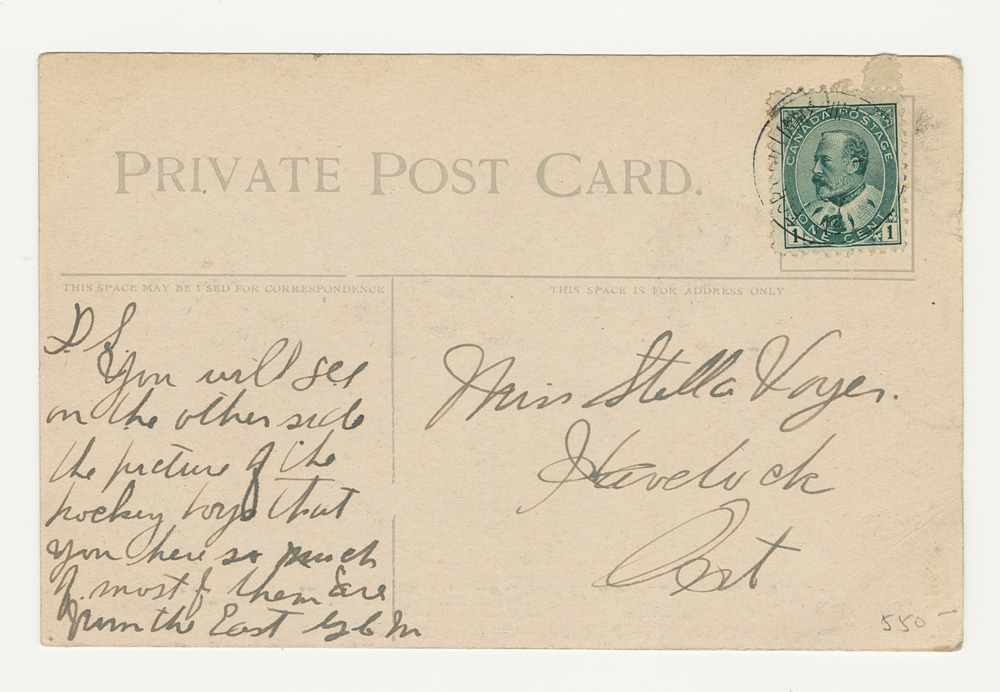 PRIVATE POST CARD.
CANADA POSTAGE
ONE CENT
1 1
THIS SPACE MAY BE USED FOR CORRESPONDENCE
THIS SPACE IS FOR ADDRESS ONLY
D. S.
You will see
on the other side
the picture of the
hockey boys that
you here so much
of most of them are
from the East
Miss Stella Voyer.
Havelock
Ont
550-